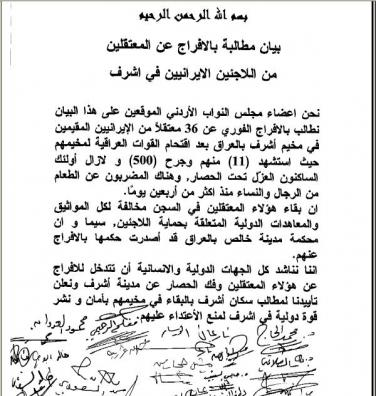 بسم الله الرحمن الرحيم
بيان مطالبة بالافراج عن المعتقلين
من اللاجئين الايرانيين في اشرف
نحن اعضاء مجلس النواب الأردني الموقعين على هذا البيان
نطالب بالافراج الفوري عن 36 معتقلاً من الإيرانيين المقيمين
في مخيم أشرف بالعراق بعد اقتحام القوات العراقية لمخيمهم
حيث استشهد (11) منهم وجرح (500) و لازال أولئك
الساكنون العزّل تحت الحصار, وهناك المضربون عن الطعام
من الرجال والنساء منذ اكثر من أربعين يومًا.
ان بقاء هؤلاء المعتقلين في السجن مخالفة لكل المواثيق
والمعاهدات الدولية المتعلقة بحماية اللاجئين, سيما و ان
محكمة مدينة خالص بالعراق قد أصدرت حكمها بالافراج
عنهم.
اننا نناشد كل الجهات الدولية والانسانية أن تتدخل للافراج
عن هؤلاء المعتقلين وفك الحصار عن مدينة أشرف ونعلن
تأييدنا لمطالب سكان أشرف بالبقاء في مخيمهم بأمان و نشر
قوة دولية في اشرف لمنع الأعتداء عليهم.